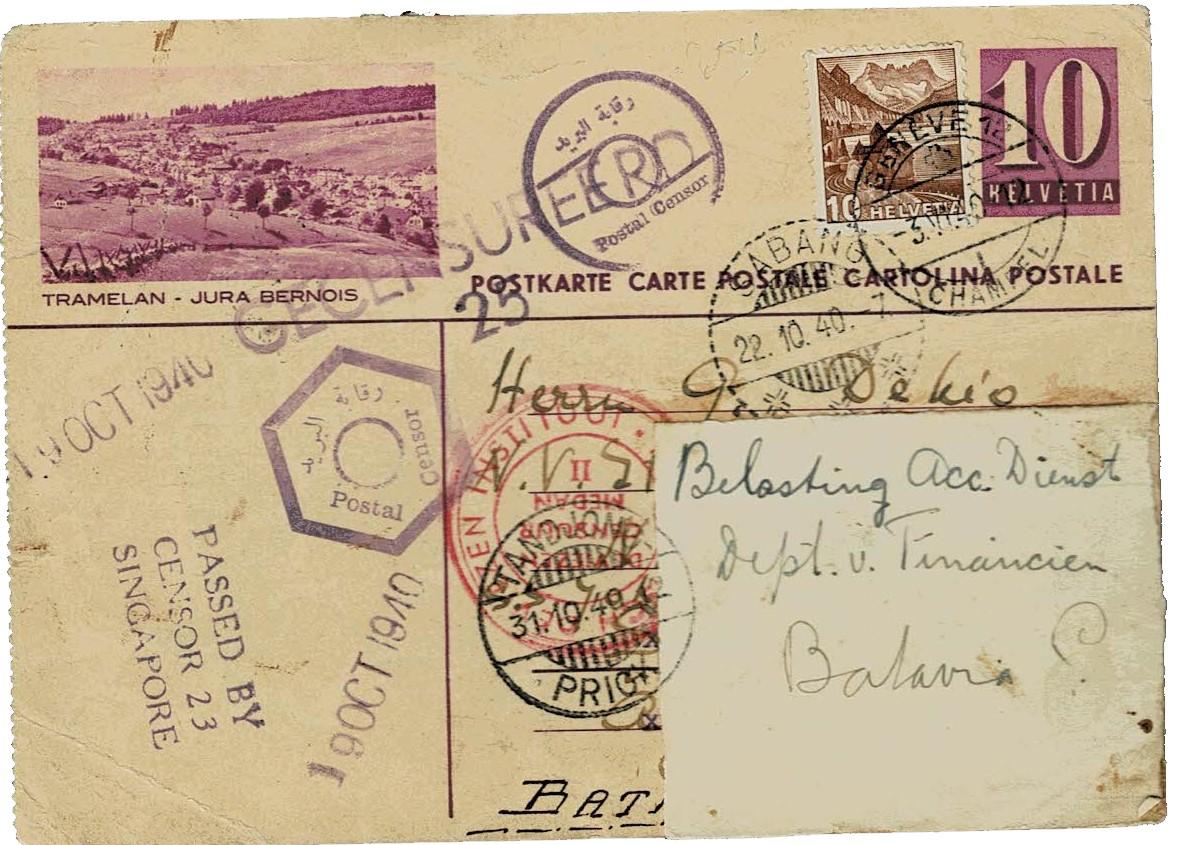 رقابة البريد
R
Postal Censor
10
HELVETIA
10
HELVETIA
GENÈVE 12
CHAMPEL
POSTKARTE CARTE POSTALE CARTOLINA POSTALE
TRAMELAN - JURA BERNOIS
GECENSUREERD
25
SABANG
22. 10. 40. - 7
19 OCT 1940
رقابة البريد
Postal
Censor
Herrn G. Dekio
N. V.
II
MEDAN
TANDJONG
31. 10. 40
PRIOK
PASSED BY
CENSOR 23
SINGAPORE
19 OCT 1940
BATA
Belasting Acc. Dienst
Dept. v. Financien
Batavia C.